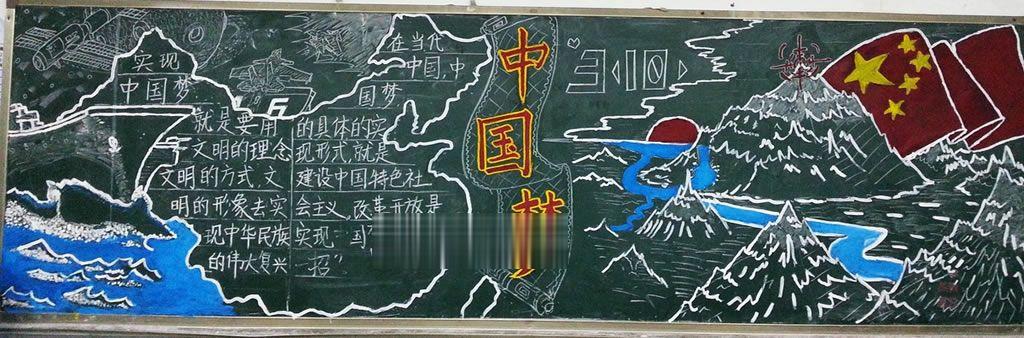 实现
中国梦
就是要用
文明的理念
文明的方式,文
明的形象去实
现中华民族
的伟大复兴
在当代
中国,中
国梦
的具体的实
现形式就是
建设中国特色社
会主义,改革开放是
实现
一招”
中
国
梦
310